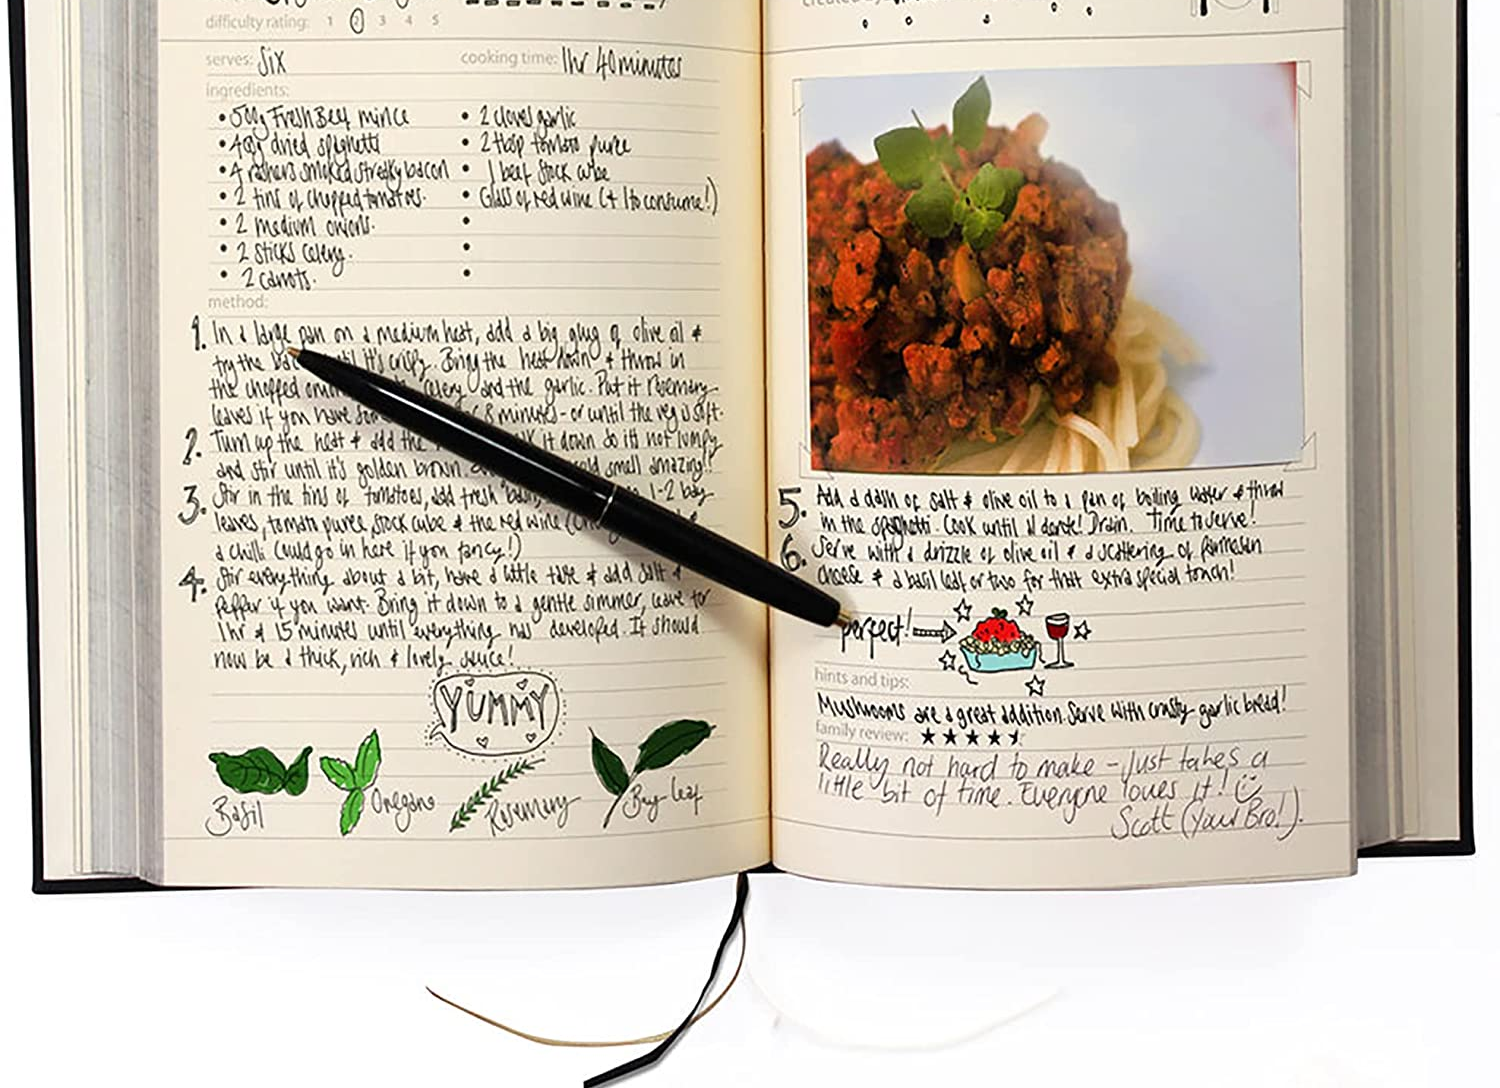 difficulty rating: 1 2 3 4 5
serves: Six
cooking time: 1hr 40minutes
ingredients:
• 500g Fresh Beef mince
• dried spaghetti
• 4 rashers smoked streaky bacon
• 2 tins of chopped tomatoes.
• 2 medium onions.
• 2 sticks celery.
• 2 carrots.
• 2 cloves garlic
• 2 tbsp tomato puree
• 1 beef stock cube
• Glass of red wine (+ 1 to consume!)
method:
1. In a large pan on a medium heat, add a big glug of olive oil &
fry the until it's crispy. Bring the heat down & throw in
the chopped celery and the garlic. Put it rosemary
leaves if you have 8 minutes - or until the veg is soft.
2. Turn up the heat & add the it down so it's not lumpy
and stir until it's golden brown smell amazing!!
3. Stir in the tins of tomatoes, add fresh 1-2 bay
leaves, tomato puree, stock cube & the red wine
a chilli could go in here if you fancy!)
4. Stir everything about a bit, have a little taste & add salt &
pepper if you want. Bring it down to a gentle simmer, leave for
1hr & 15 minutes until everything has developed. It should
now be a thick, rich & lovely sauce!
YUMMY
Basil
Oregano
Rosemary
Bay leaf
created by:
5. Add a dash of salt & olive oil to a pan of boiling water & throw
in the spaghetti. Cook until al dente! Drain. Time to serve!
6. Serve with a drizzle of olive oil & a scattering of parmesan
cheese & a basil leaf or two for that extra special touch!
perfect!
hints and tips:
Mushrooms are a great addition. Serve with crusty garlic bread!
family review:
Really not hard to make - Just takes a
little bit of time. Everyone loves it!
Scott (Your Bro!).